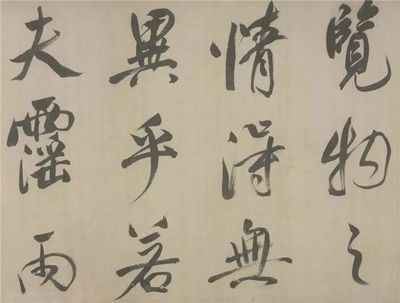 覽物之
情得無
異乎若
夫霪雨